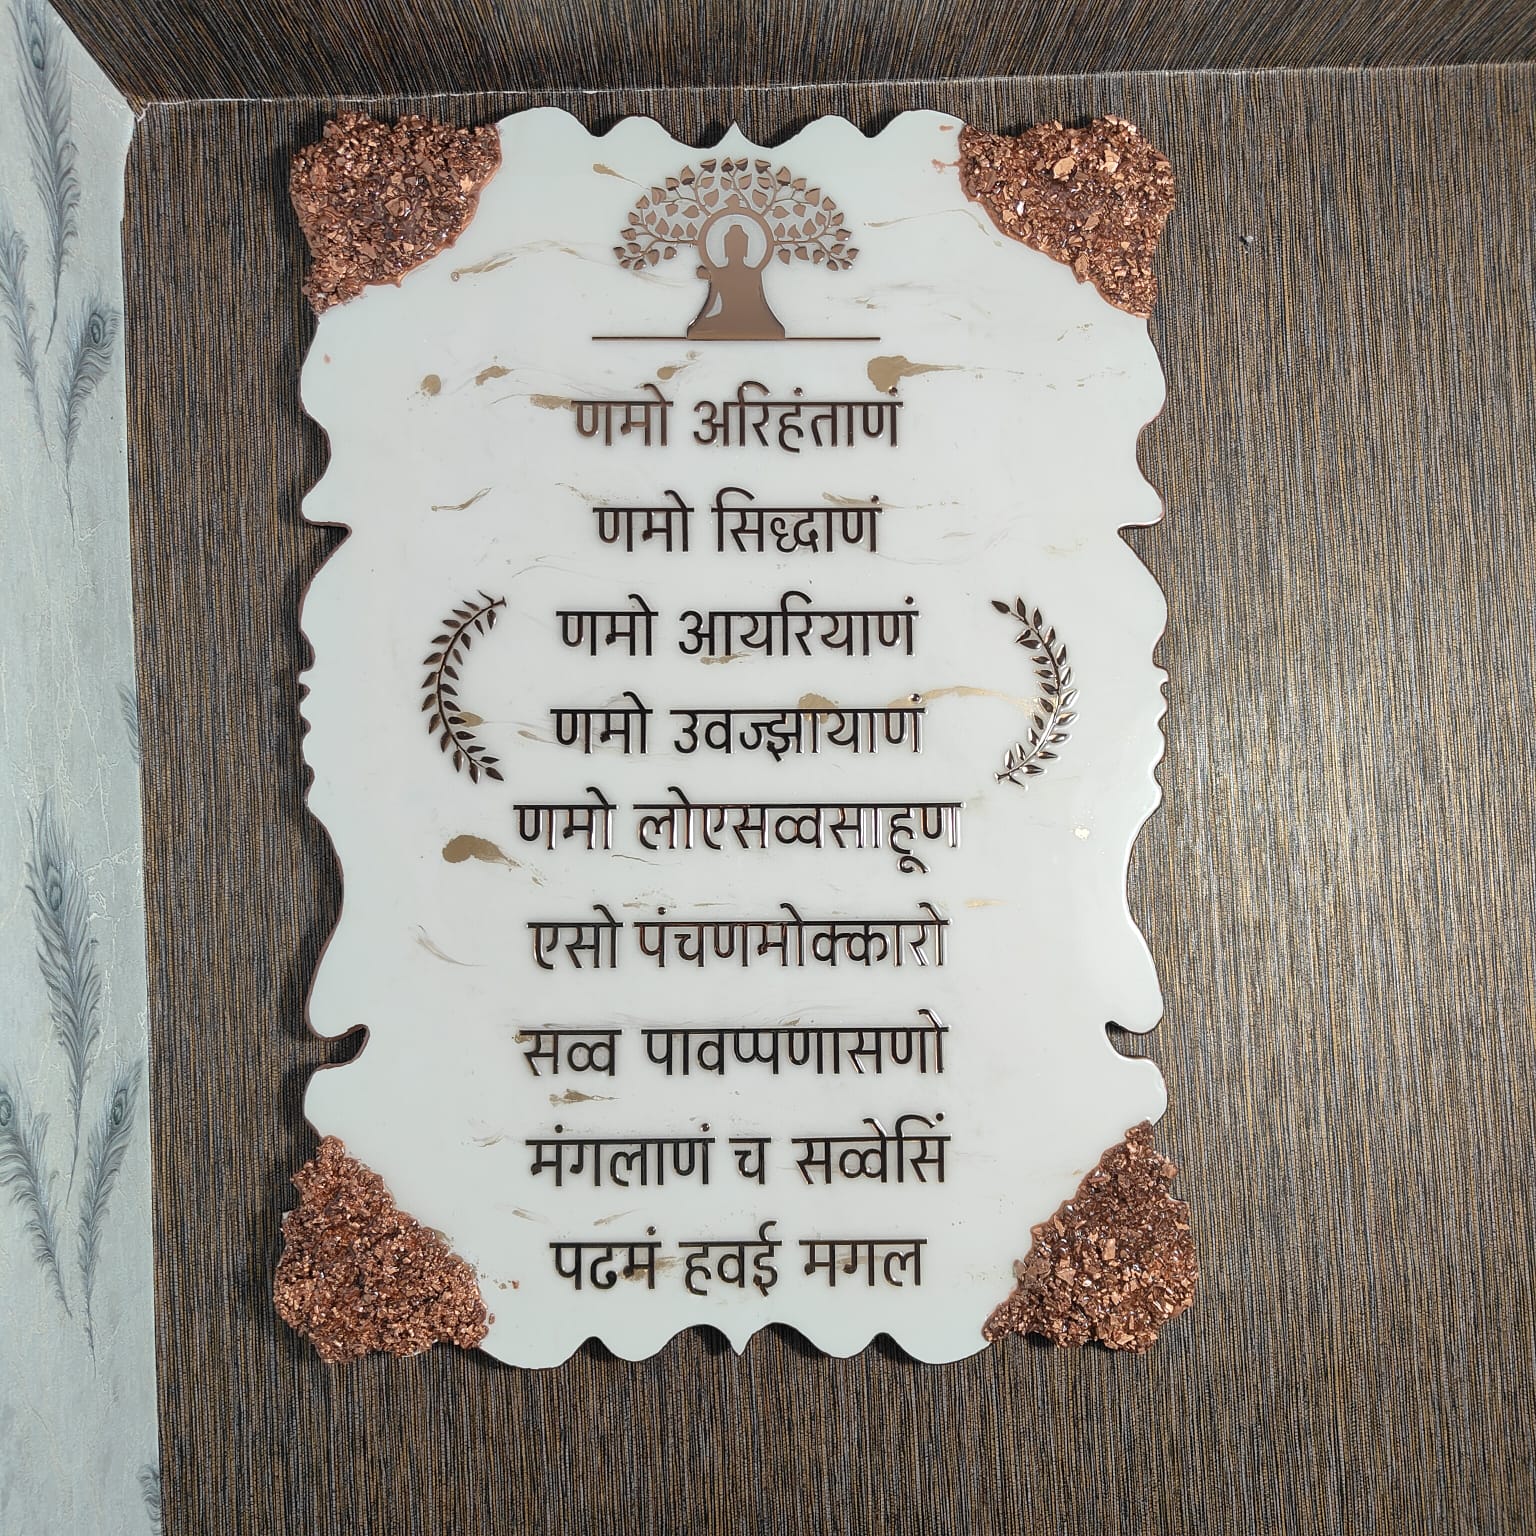 णमो अरिहंताणं
णमो सिध्दाणं
णमो आयरियाणं
णमो उवज्झायाणं
णमो लोएसव्वसाहूण
एसो पंचणमोक्कारो
सव्व पावप्पणासणो
मंगलाणं च सव्वेसिं
पढमं हवई मगल